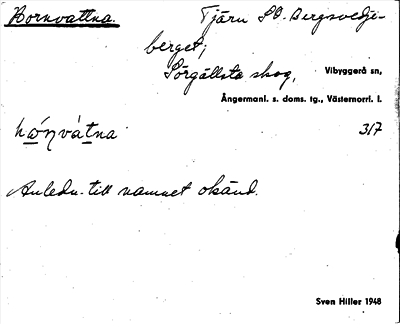 Bornvattna. Tjärn SO. Bergsvedje-
berget;
Sörgällsta skog, Vibyggerå sn,
Ångermanl. s. doms. tg., Västernorrl. l.
317
Anledn. till namnet okänd.
Sven Hiller 1948